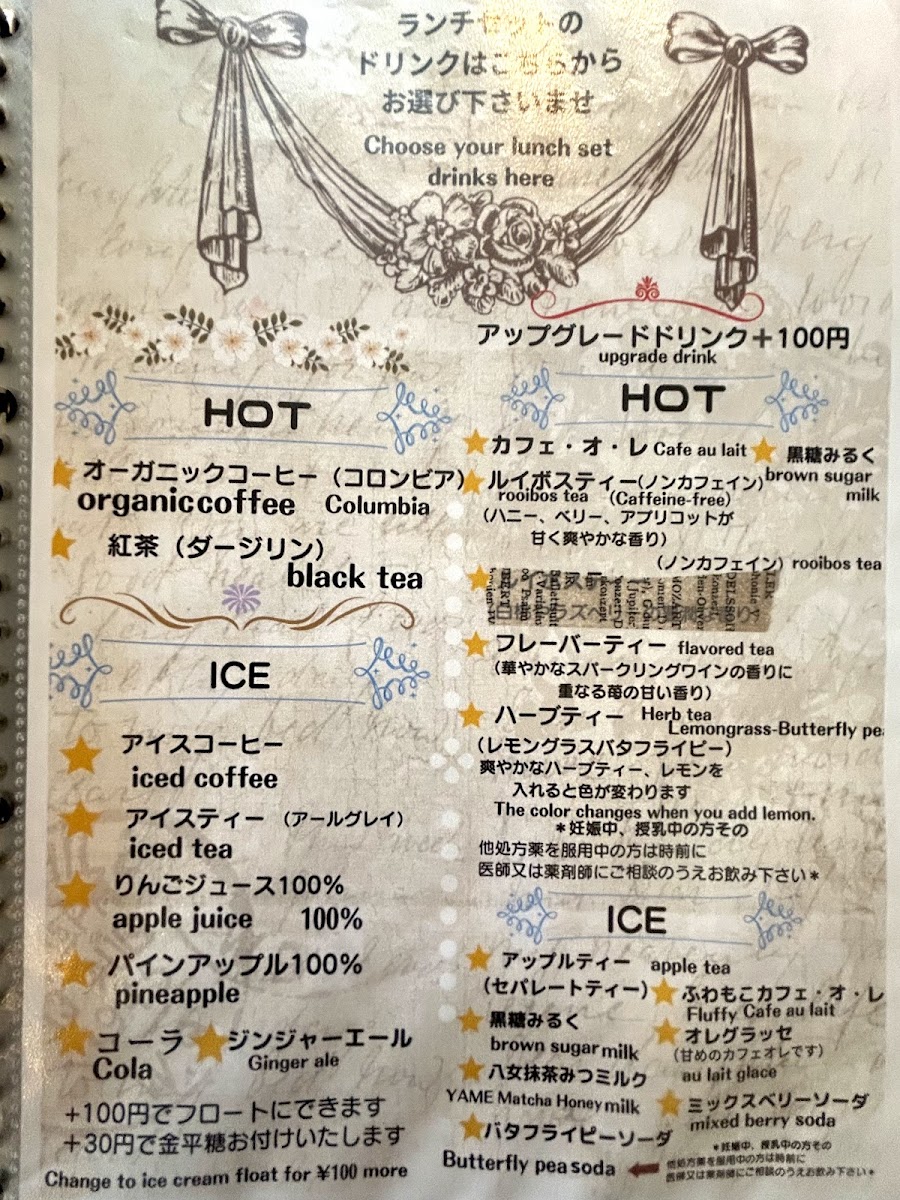 ランチセットの
ドリンクはこちらから
お選び下さいませ
Choose your lunch set
drinks here
HOT
オーガニックコーヒー（コロンビア）
organic coffee Columbia
紅茶（ダージリン）
black tea
ICE
アイスコーヒー
iced coffee
アイスティー（アールグレイ）
iced tea
りんごジュース100%
apple juice 100%
パインアップル100%
pineapple
コーラ ジンジャーエール
Cola Ginger ale
+100円でフロートにできます
+30円で金平糖お付けいたします
Change to ice cream float for ¥100 more
アップグレードドリンク＋100円
upgrade drink
HOT
カフェ・オ・レ Cafe au lait 黒糖みるく
brown sugar
milk
ルイボスティー(ノンカフェイン)
rooibos tea (Caffeine-free)
（ハニー、ベリー、アプリコットが
甘く爽やかな香り）
（ノンカフェイン）rooibos tea
フレーバーティー flavored tea
（華やかなスパークリングワインの香りに
重なる苺の甘い香り）
ハーブティー Herb tea
Lemongrass-Butterfly pea
（レモングラスバタフライピー）
爽やかなハーブティー、レモンを
入れると色が変わります
The color changes when you add lemon.
＊妊娠中、授乳中の方その
他処方薬を服用中の方は時前に
医師又は薬剤師にご相談のうえお飲み下さい＊
ICE
アップルティー apple tea
（セパレートティー）
ふわもこカフェ・オ・レ
Fluffy Cafe au lait
黒糖みるく
brown sugar milk
オレグラッセ
（甘めのカフェオレです）
au lait glace
八女抹茶みつミルク
YAME Matcha Honey milk
ミックスベリーソーダ
mixed berry soda
バタフライピーソーダ
Butterfly pea soda
＊妊娠中、授乳中の方その
他処方薬を服用中の方は時前に
医師又は薬剤師にご相談のうえお飲み下さい＊